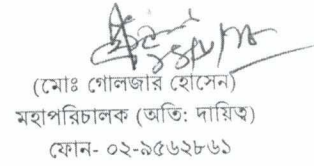 (মোঃ গোলজার হোসেন)
মহাপরিচালক (অতি: দায়িত্ব)
ফোন- ০২-৯৫৬২৮৬১